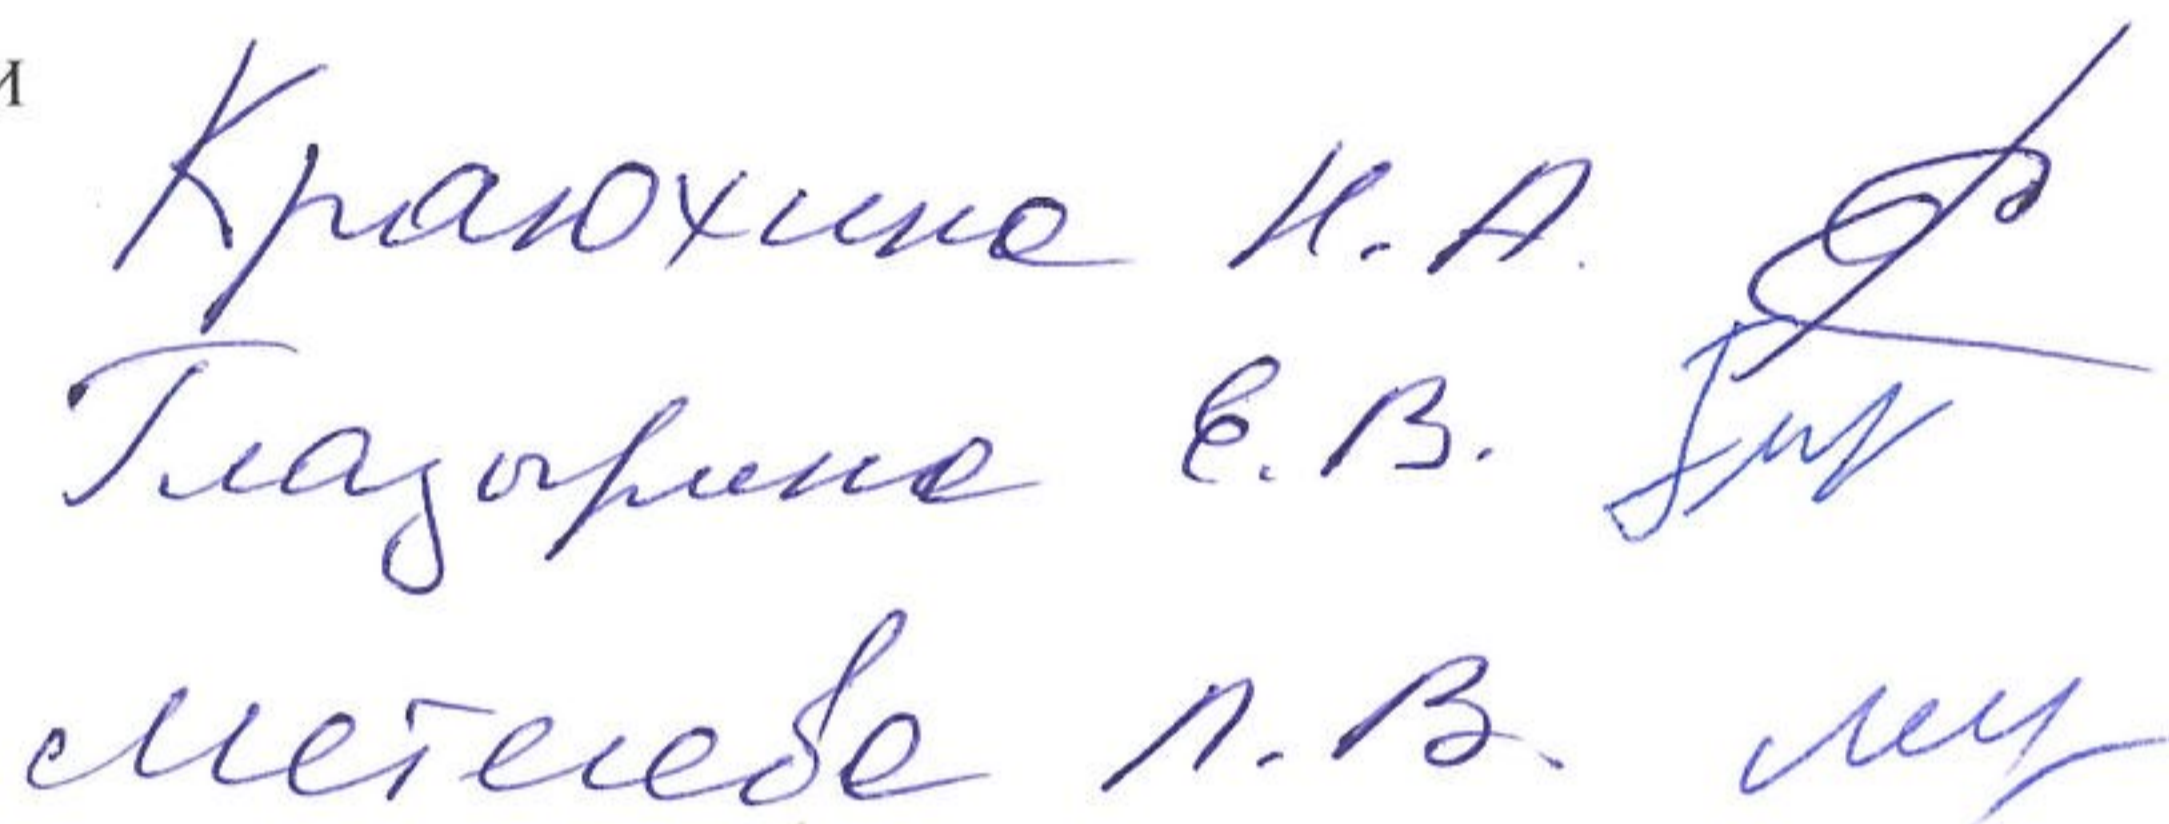 и Краюхина Н. А.
Глазырина Е. В.
Метелева Л. В.